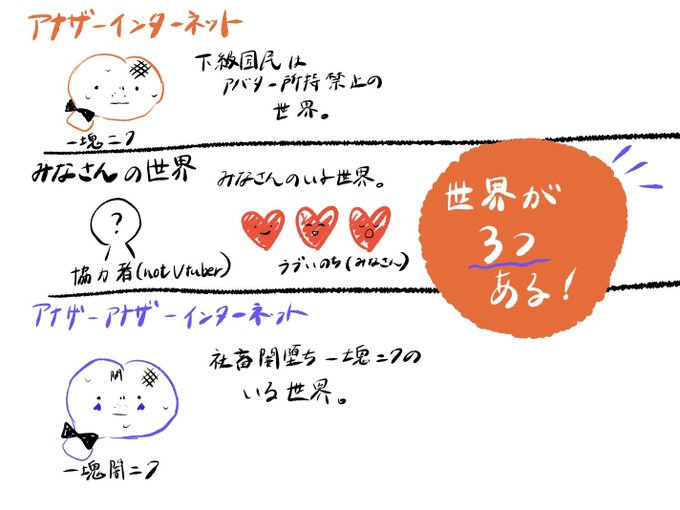 アナザーインターネット
下級国民は
アバター所持禁止の
世界。
一塊ニク
みなさんの世界
みなさんのいる世界。
?
協力者(not Vtuber)
うごいのち(みなさん)
世界が
3つ
ある!
アナザーアナザーインターネット
社畜闇堕ち一塊ニクの
いる世界。
闇
一塊闇ニク